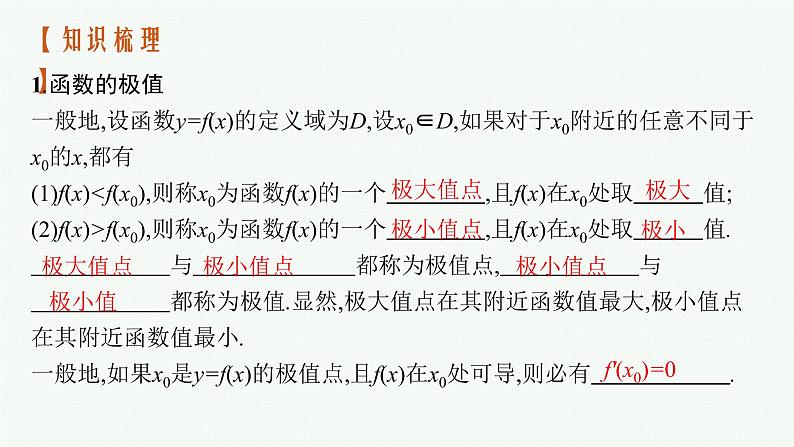 【 知识梳理
】
1.函数的极值
一般地,设函数y=f(x)的定义域为D,设x₀∈D,如果对于x₀附近的任意不同于
x₀的x,都有
(1)f(x)<f(x₀),则称x₀为函数f(x)的一个 极大值点 ,且f(x)在x₀处取 极大 值;
(2)f(x)>f(x₀),则称x₀为函数f(x)的一个 极小值点 ,且f(x)在x₀处取 极小 值.
极大值点 与 极小值点 都称为极值点, 极小值点 与
极小值 都称为极值.显然,极大值点在其附近函数值最大,极小值点
在其附近函数值最小.
一般地,如果x₀是y=f(x)的极值点,且f(x)在x₀处可导,则必有 f'(x₀)=0 .